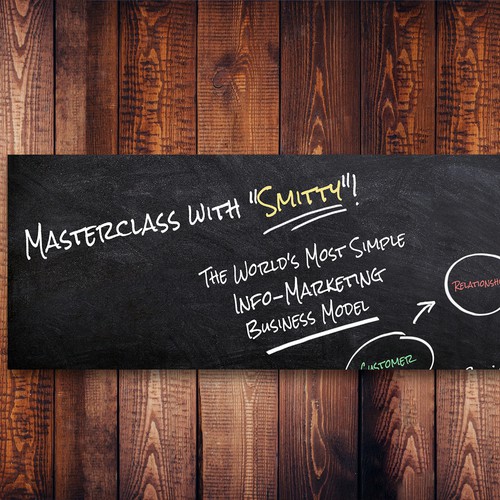 Masterclass with "Smitty"!
The World's Most Simple
Info-Marketing
Business Model
Customer